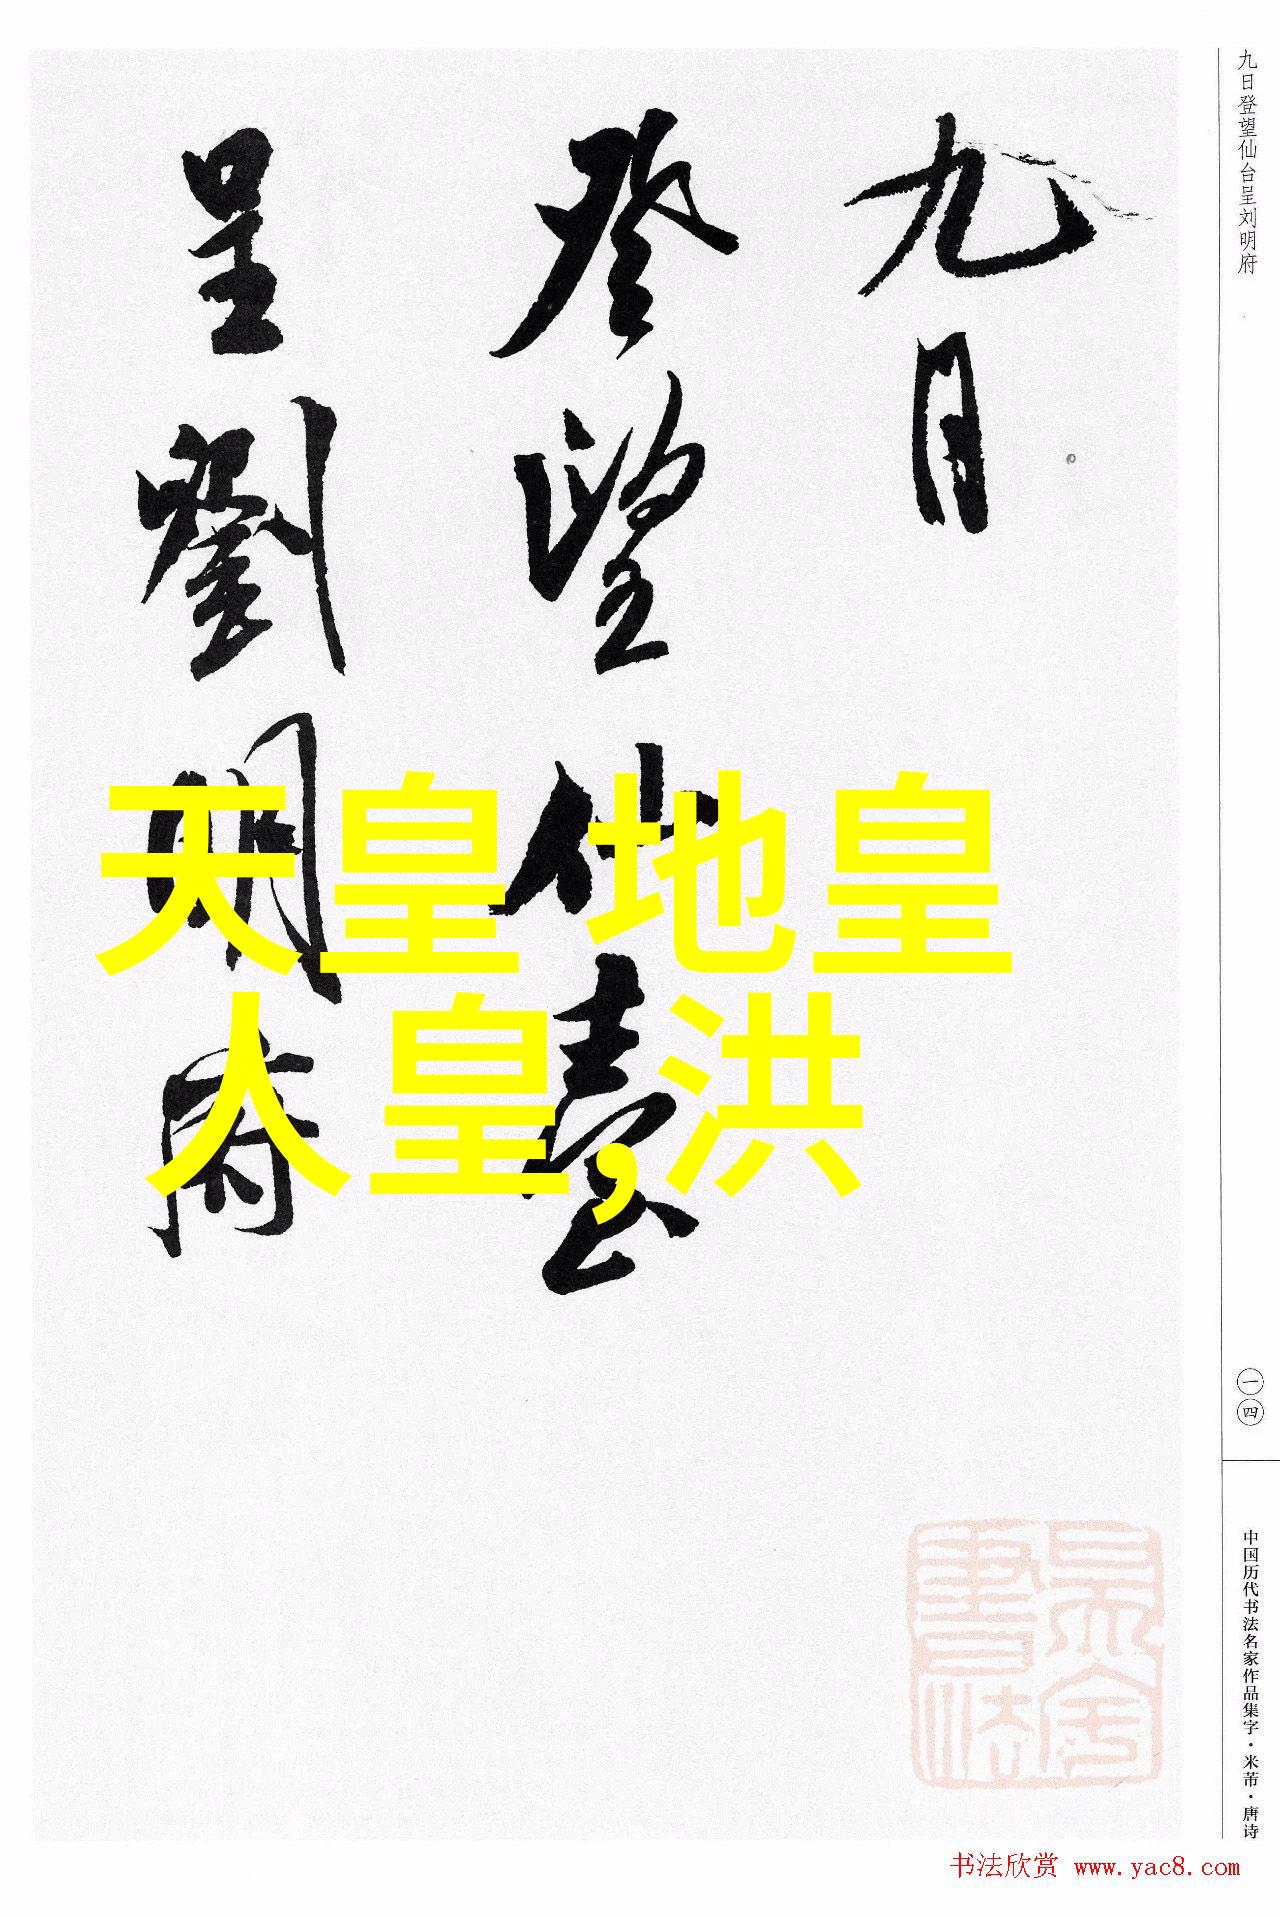 九日登望仙台呈刘明府
九日
登望仙臺
呈劉明府
天皇 地皇
人皇,洪
一四
中国历代书法名家作品集字·米芾·唐诗
书法欣赏 www.yac8.com